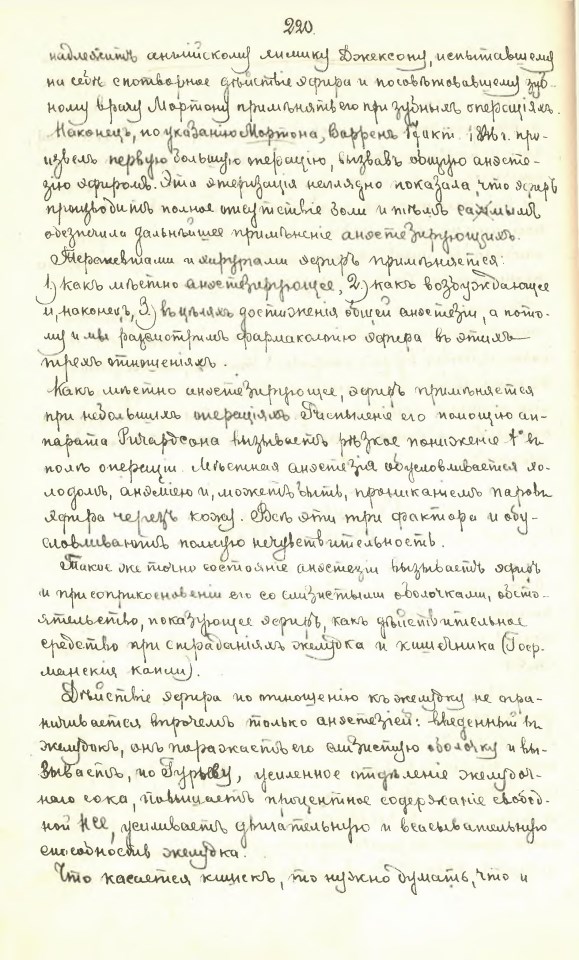 220.
надлежитъ английскому химику Джексону, испытавшему
на себѣ снотворное дѣйствіе эфира и посовѣтовавшему зуб-
ному врачу Мортону примѣнять его при зубныхъ операціяхъ.
Наконецъ, по указанію Мортона, Варренъ 17 окт. 1846 г. про-
извелъ первую большую операцію, вызвавъ общую анэсте-
зію эфиромъ. Эта этеризація наглядно показала, что эфиръ
производитъ полное отсутствіе боли и тѣмъ самымъ
обезпечила дальнѣйшее примѣненіе анэстезирующихъ.
Терапевтами и хирургами эфиръ примѣняется:
1) какъ мѣстно анэстезирующее, 2) какъ возбуждающее
и, наконецъ, 3) въ цѣляхъ достиженія общей анэстезіи, а пото-
му и мы разсмотримъ фармакологію эфира въ этихъ
трехъ отношеніяхъ.
Какъ мѣстно анэстезирующее, эфиръ примѣняется
при небольшихъ операціяхъ. Распыленіе его помощію ап-
парата Ричардсона вызываетъ рѣзкое пониженіе t° въ
полѣ операціи. Мѣстная анэстезія обусловливается хо-
лодомъ, анэміею и, можетъ быть, прониканіемъ паровъ
эфира черезъ кожу. Всѣ эти три фактора и обу-
словливаютъ полную нечувствительность.
Такое же точно состояніе анэстезіи вызываетъ эфиръ
и при соприкосновеніи его со слизистыми оболочками, обсто-
ятельство, показующее эфиръ, какъ дѣйствительное
средство при страданіяхъ желудка и кишечника (Гоф-
манскія капли).
Дѣйствіе эфира по отношенію къ желудку не огра-
ничивается впрочемъ только анэстезіей: введенный въ
желудокъ, онъ поражаетъ его слизистую оболочку и вы-
зываетъ, по Гурьеву, усиленное отдѣленіе желудоч-
наго сока, повышаетъ процентное содержаніе свобод-
ной HCl, усиливаетъ двигательную и всасывательную
способность желудка.
Что касается кишекъ, то нужно думать, что и